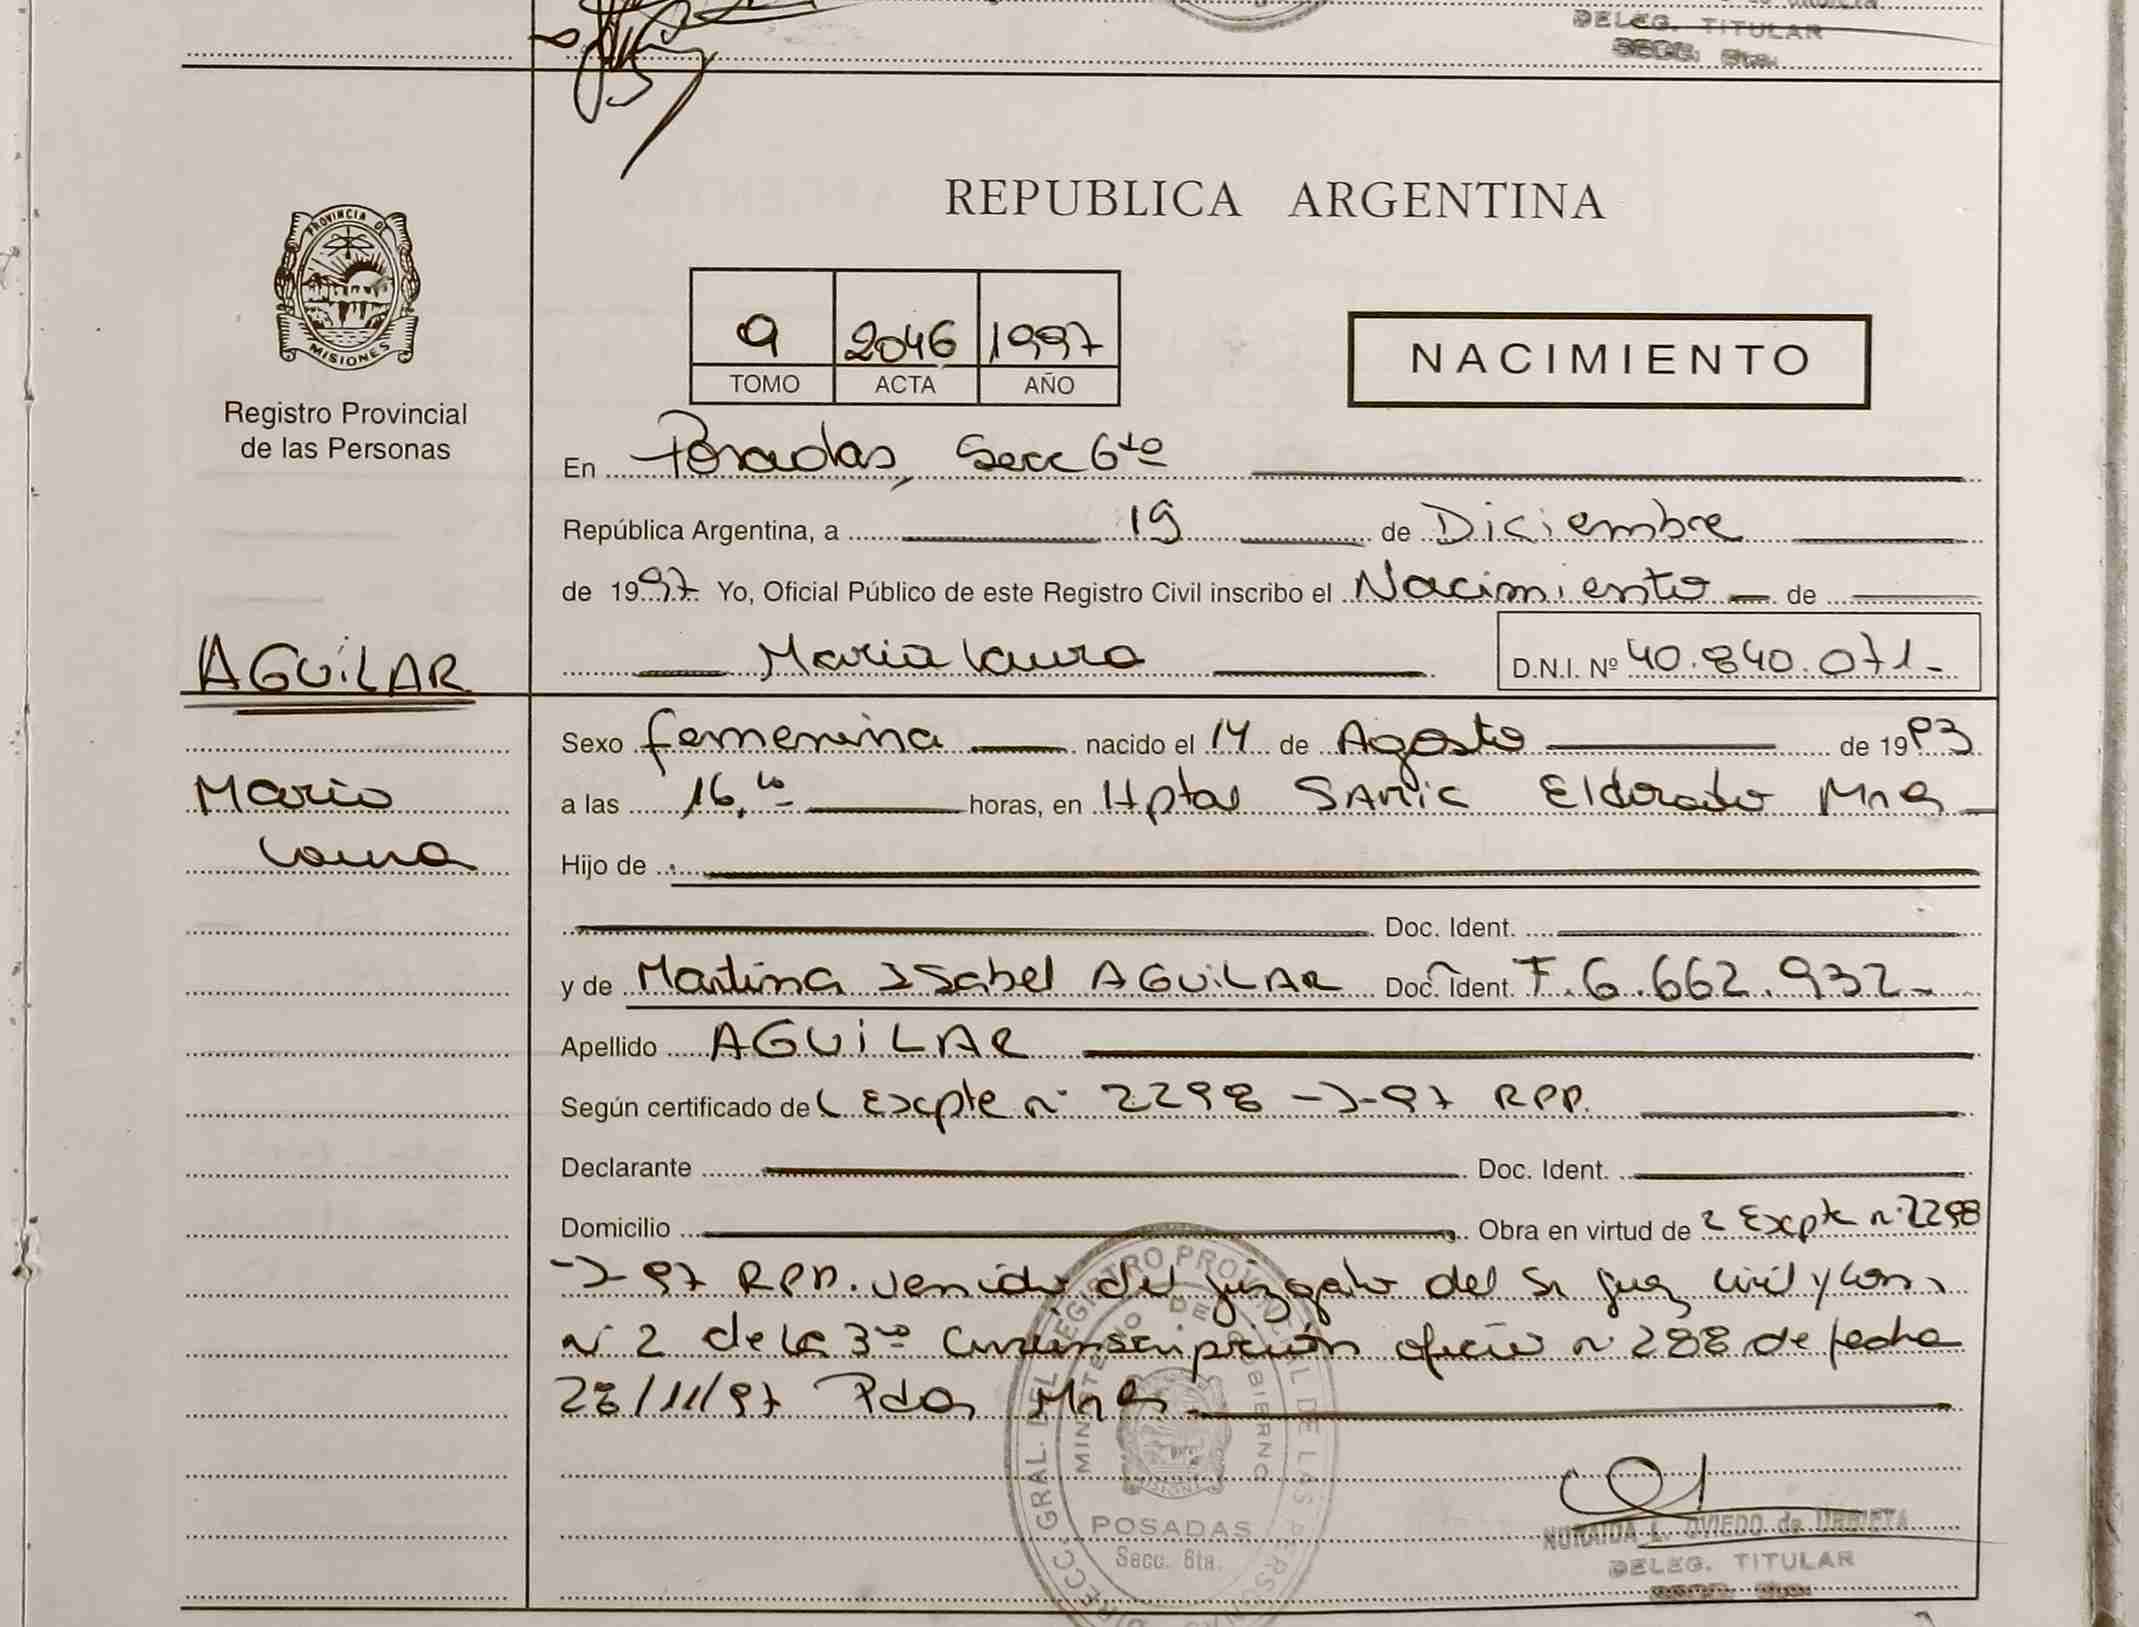 DELEG. TITULAR
SECC. 6ta.
REPUBLICA ARGENTINA
PROVINCIA DE
MISIONES
Registro Provincial
de las Personas
9 2046 1997
TOMO ACTA AÑO
NACIMIENTO
En Posadas, Secc 6ta
República Argentina, a 19 de Diciembre
de 1997 Yo, Oficial Público de este Registro Civil inscribo el Nacimiento de
AGUILAR
Maria Laura
D.N.I. Nº 40.840.071-
Sexo femenina nacido el 14 de Agosto de 1993
Maria
a las 16,00 horas, en Hptal SAMIC Eldorado Mnes
Laura
Hijo de
Doc. Ident.
y de Martina Isabel AGUILAR Doc. Ident. F.6.662.932-
Apellido AGUILAR
Según certificado de Expte nº 2298 -J-97 RPP.
Declarante Doc. Ident.
Domicilio Obra en virtud de Expte nº 2298
-J-97 RPP. venido del juzgado del Sr Juez Civil y Com.
nº 2 de la 3ra Circunscripción oficio nº 288 de fecha
28/11/97 Pdas Mnes.
DIRECC. GRAL. DEL REGISTRO PROVINCIAL DE LAS PERSONAS
MINISTERIO DE GOBIERNO
MISIONES
POSADAS
Secc. 6ta.
NORAIDA L. OVIEDO de URBIETA
DELEG. TITULAR